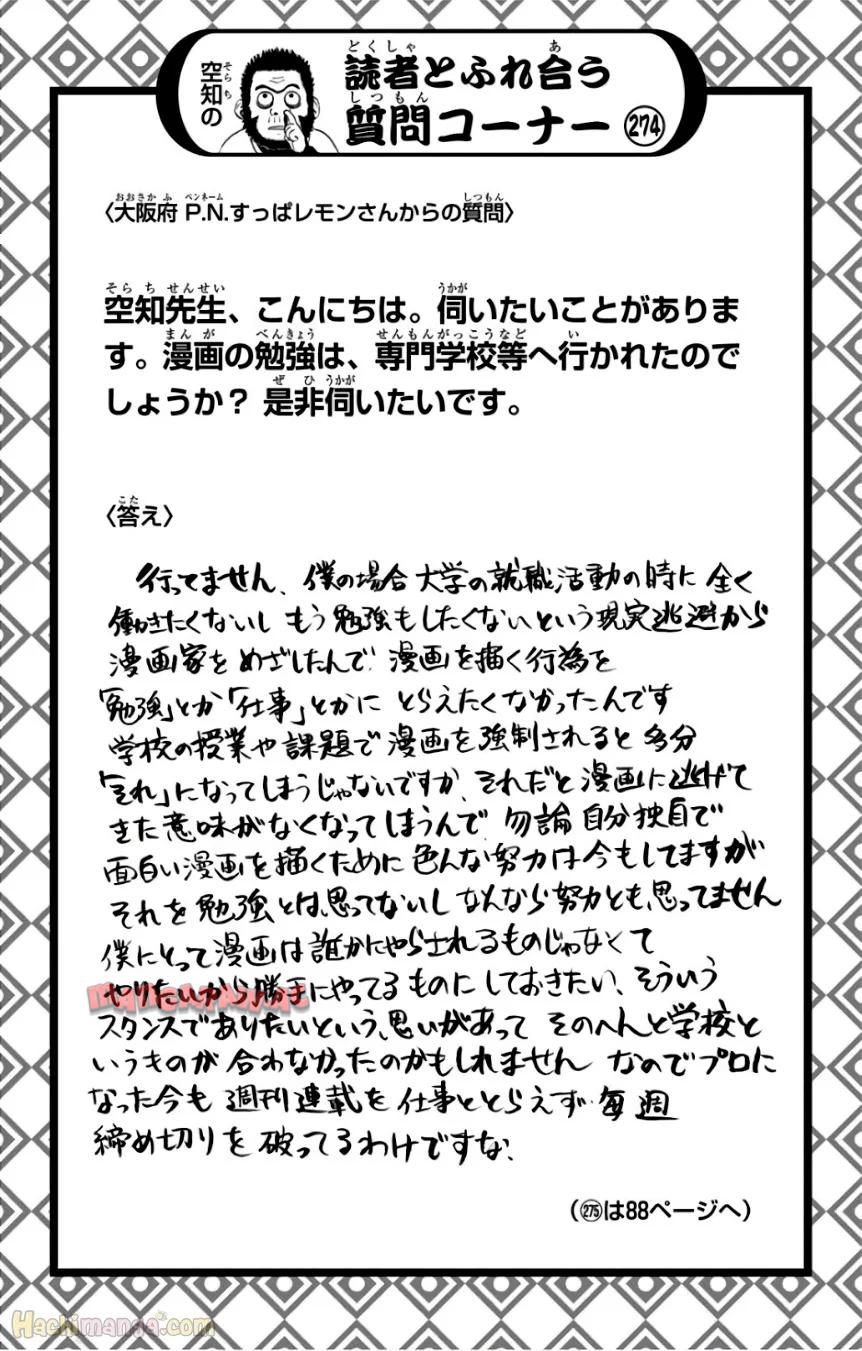 空知の
読者とふれ合う
質問コーナー 274
〈大阪府 P.N.すっぱレモンさんからの質問〉
空知先生、こんにちは。伺いたいことがありま
す。漫画の勉強は、専門学校等へ行かれたので
しょうか? 是非伺いたいです。
〈答え〉
行ってません、僕の場合大学の就職活動の時に全く
働きたくないしもう勉強もしたくないという現実逃避から
漫画家をめざしたんで 漫画を描く行為を
「勉強」とか「仕事」とかに とらえたくなかったんです
学校の授業や課題で漫画を強制されると多分
「それ」になってしまうじゃないですか、それだと漫画に逃げて
きた意味がなくなってしまうんで 勿論 自分独自で
面白い漫画を描くために色んな努力は今もしてますが
それを勉強とは思ってないしなんなら努力とも思ってません
僕にとって漫画は誰かにやらされるものじゃなくて
やりたいから勝手にやってるものにしておきたい、そういう
スタンスでありたいという思いがあって そのへんと学校と
いうものが合わなかったのかもしれません なのでプロに
なった今も 週刊連載を仕事ととらえず 毎週
締め切りを破ってるわけですな.
(275は88ページへ)
Hachimanga.com